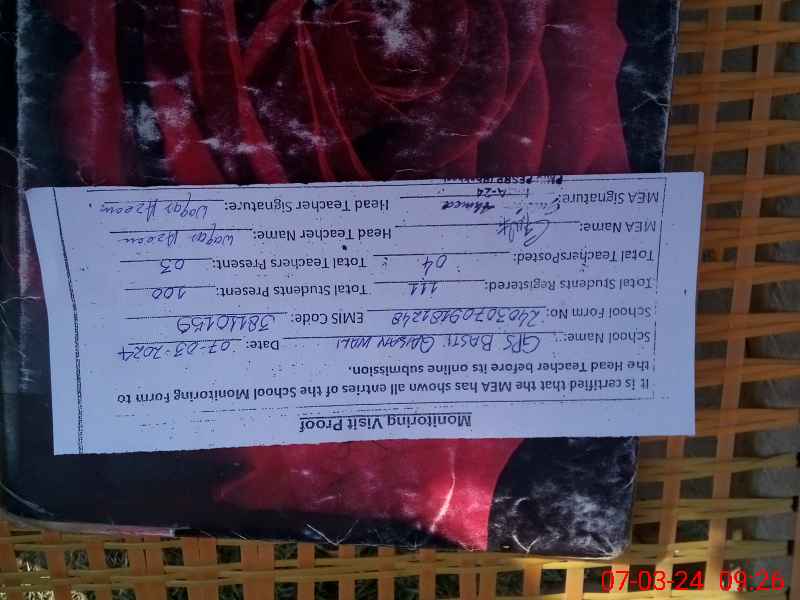 Monitoring Visit Proof
It is certified that the MEA has shown all entries of the School Monitoring Form to
the Head Teacher before its online submission.
School Name: GPS BASTI WALI Date: 07-03-2024
School Form No: 24030709181248 EMIS Code: 38110159
Total Students Registered: 111 Total Students Present: 100
Total TeachersPosted: 04 Total Teachers Present: 03
MEA Name: Head Teacher Name: Waqar Azeem
MEA Signature: Ahmed Head Teacher Signature: Waqar Azeem
A-24
07-03-24 09:26